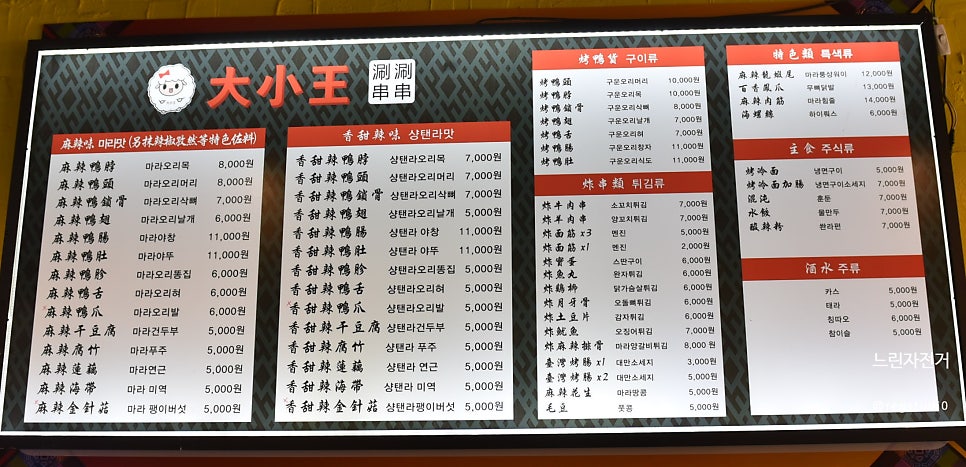 大小王
涮涮
串串
麻辣味 마라맛 (另抹辣椒孜然等特色佐料)
麻辣鴨脖 마라오리목 8,000원
麻辣鴨頭 마라오리머리 8,000원
麻辣鴨鎖骨 마라오리삭뼈 7,000원
麻辣鴨翅 마라오리날개 6,000원
麻辣鴨腸 마라야창 11,000원
麻辣鴨肚 마라야뚜 11,000원
麻辣鴨胗 마라오리똥집 6,000원
麻辣鴨舌 마라오리혀 6,000원
麻辣鴨爪 마라오리발 6,000원
麻辣干豆腐 마라건두부 5,000원
麻辣腐竹 마라푸주 5,000원
麻辣蓮藕 마라연근 5,000원
麻辣海帶 마라 미역 5,000원
麻辣金針菇 마라 팽이버섯 5,000원
香甜辣味 샹탠라맛
香甜辣鴨脖 샹탠라오리목 7,000원
香甜辣鴨頭 샹탠라오리머리 7,000원
香甜辣鴨鎖骨 샹탠라오리삭뼈 7,000원
香甜辣鴨翅 샹탠라오리날개 5,000원
香甜辣鴨腸 샹탠라 야창 11,000원
香甜辣鴨肚 샹탠라 야뚜 11,000원
香甜辣鴨胗 샹탠라오리똥집 5,000원
香甜辣鴨舌 샹탠라오리혀 5,000원
香甜辣鴨爪 샹탠라오리발 5,000원
香甜辣干豆腐 샹탠라건두부 5,000원
香甜辣腐竹 샹탠라 푸주 5,000원
香甜辣蓮藕 샹탠라 연근 5,000원
香甜辣海帶 샹탠라 미역 5,000원
香甜辣金針菇 샹탠라팽이버섯 5,000원
烤鴨貨 구이류
烤鴨頭 구운오리머리 10,000원
烤鴨脖 구운오리목 10,000원
烤鴨鎖骨 구운오리삭뼈 8,000원
烤鴨翅 구운오리날개 7,000원
烤鴨舌 구운오리혀 7,000원
烤鴨腸 구운오리창자 11,000원
烤鴨肚 구운오리식도 11,000원
炸串類 튀김류
炸牛肉串 소꼬치튀김 7,000원
炸羊肉串 양꼬치튀김 7,000원
炸面筋 x3 멘진 5,000원
炸面筋 x1 멘진 2,000원
炸蜜蛋 스딴구이 6,000원
炸魚丸 완자튀김 6,000원
炸鷄柳 닭가슴살튀김 6,000원
炸月牙骨 오돌뼈튀김 6,000원
炸土豆片 감자튀김 6,000원
炸魷魚 오징어튀김 7,000원
炸麻辣排骨 마라양갈비튀김 8,000원
臺灣烤腸 x1 대만소세지 3,000원
臺灣烤腸 x2 대만소세지 5,000원
麻辣花生 마라땅콩 5,000원
毛豆 풋콩 5,000원
特色類 특색류
麻辣龍蝦尾 마라룡샤위이 12,000원
百香鳳爪 무뼈닭발 13,000원
麻辣肉筋 마라힘줄 14,000원
海螺絲 하이뤄스 6,000원
主食 주식류
烤冷面 냉면구이 5,000원
烤冷面加腸 냉면구이소세지 7,000원
混沌 훈둔 7,000원
水餃 물만두 7,000원
酸辣粉 쏸라펀 7,000원
酒水 주류
카스 5,000원
테라 5,000원
칭따오 6,000원
참이슬 5,000원
느린자전거